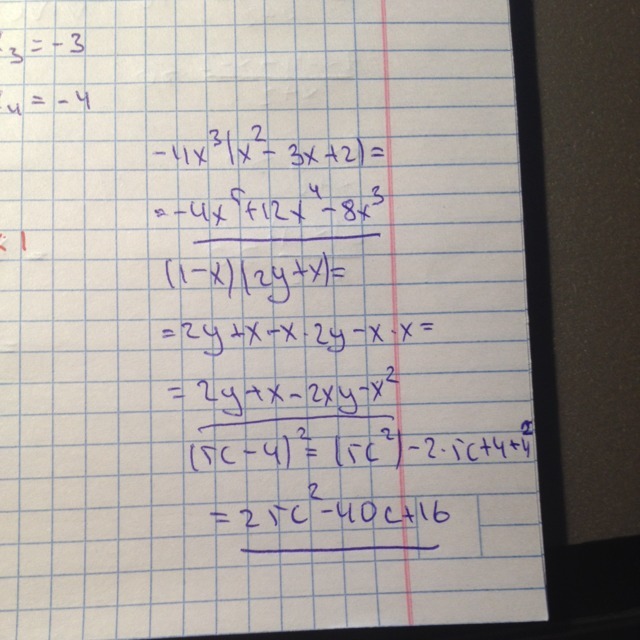 3 = -3
4 = -4
-4x³(x² - 3x + 2) =
= -4x⁵ + 12x⁴ - 8x³
(1-x)(2y+x) =
= 2y + x - x · 2y - x · x =
= 2y + x - 2xy - x²
(5c - 4)² = (5c²) - 2 · 5c + 4 + 4²
= 25c² - 40c + 16